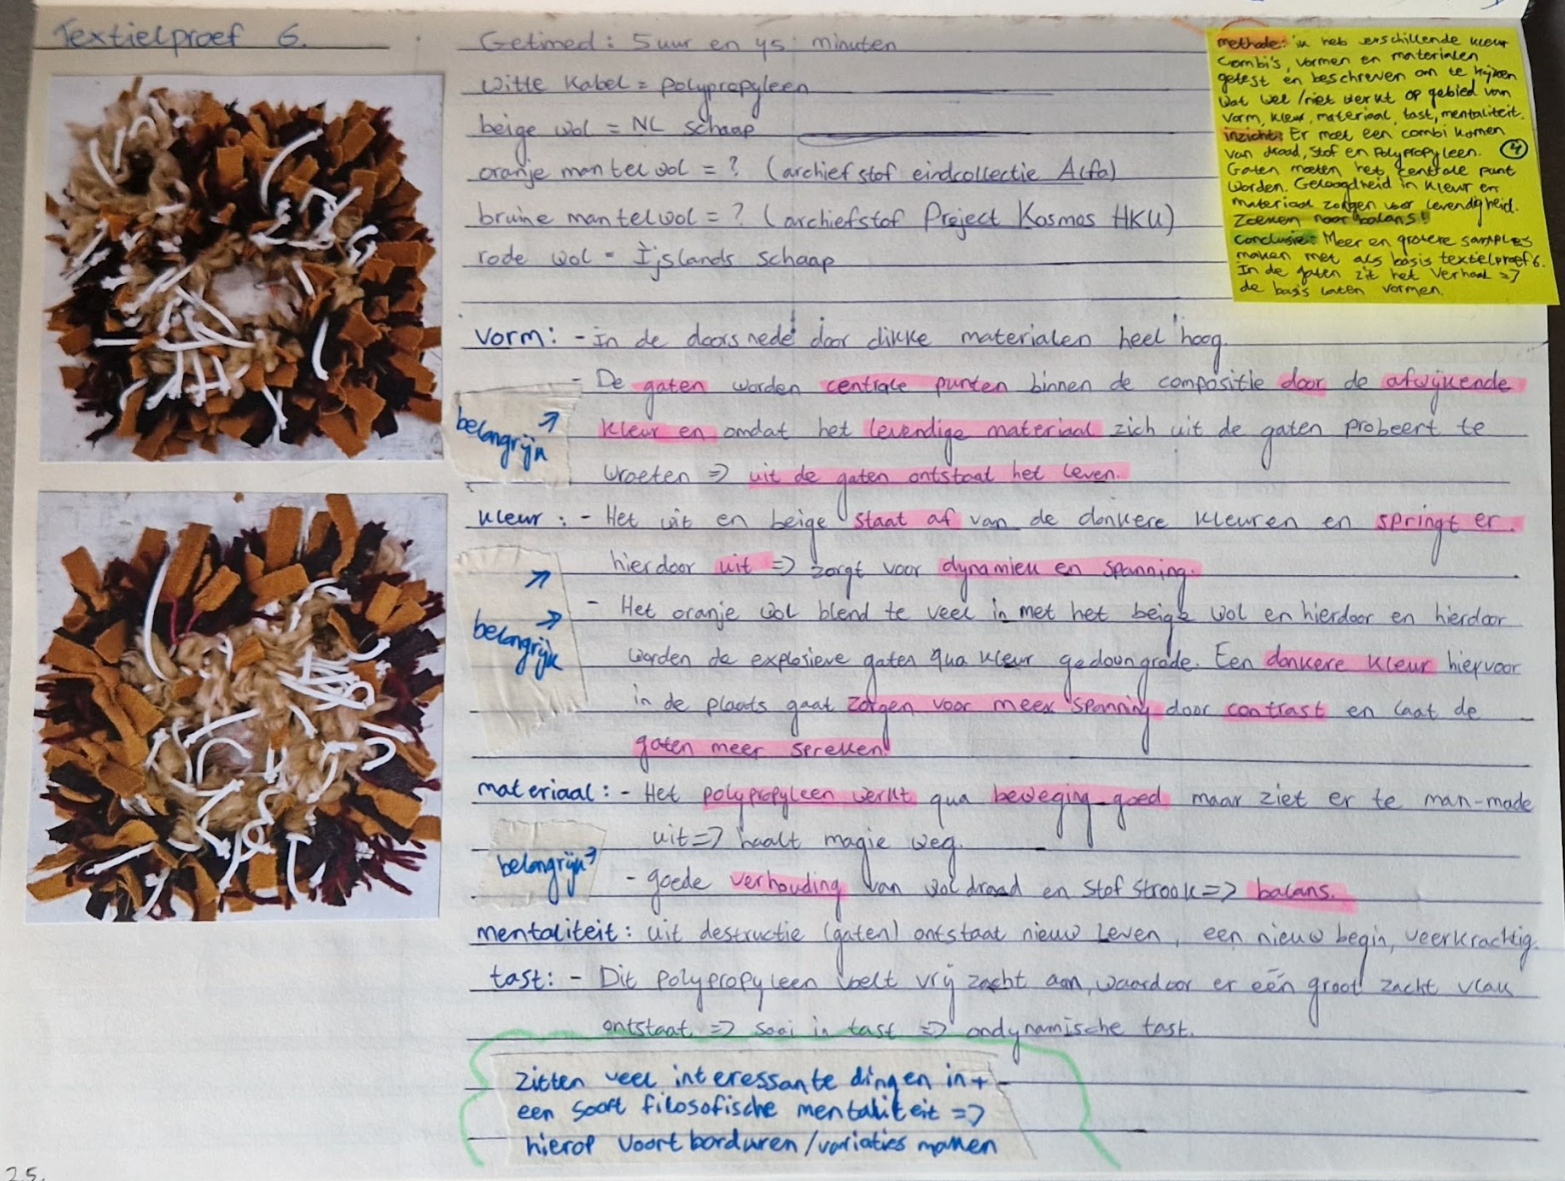 Textielproef 6.
Getimed: 5 uur en 45 minuten
witte Kabel = polypropyleen
beige wol = NL schaap
oranje mantel wol = ? (archiefstof eindcollectie Arfa)
bruine mantelwol = ? (archiefstof Project Kosmos HKU)
rode wol = Ijslands schaap
methode: ik heb verschillende kleur
combi's, vormen en materialen
getest en beschreven om te kijken
wat wel/niet werkt op gebied van
vorm, kleur, materiaal, tast, mentaliteit.
inzicht: Er moet een combi komen
van draad, stof en Polypropyleen. 4
Gaten moeten het centrale punt
worden. Gelaagdheid in kleur en
materiaal zorgen voor levendigheid.
Zoeken naar balans!
Conclusie: Meer en grotere samples
maken met als basis textielproef 6.
In de gaten zit het verhaal =>
de basis laten vormen.
vorm: - In de doorsnede door dikke materialen heel hoog.
- De gaten worden centrale punten binnen de compositie door de afwijkende
belangrijk ↗
kleur en omdat het levendige materiaal zich uit de gaten probeert te
wroeten => uit de gaten ontstaat het leven.
kleur: - Het wit en beige staat af van de donkere kleuren en springt er
hierdoor uit => zorgt voor dynamiek en spanning.
↗
belangrijk ↗
- Het oranje wol blend te veel in met het beige wol en hierdoor en hierdoor
worden de explosieve gaten qua kleur gedowngrade. Een donkere kleur hiervoor
in de plaats gaat zorgen voor meer spanning door contrast en laat de
gaten meer spreken!
materiaal: - Het polypropyleen werkt qua beweging goed maar ziet er te man-made
uit => haalt magie weg.
belangrijk ↗
- goede verhouding van wol draad en stof strook => balans.
mentaliteit: uit destructie (gaten) ontstaat nieuw leven, een nieuw begin, veerkrachtig.
tast: - Dit polypropyleen voelt vrij zacht aan, waardoor er één groot zacht vlak
ontstaat => saai in tast => ondynamische tast.
Zitten veel interessante dingen in +
een soort filosofische mentaliteit =>
hierop voort borduren/variaties maken
25.